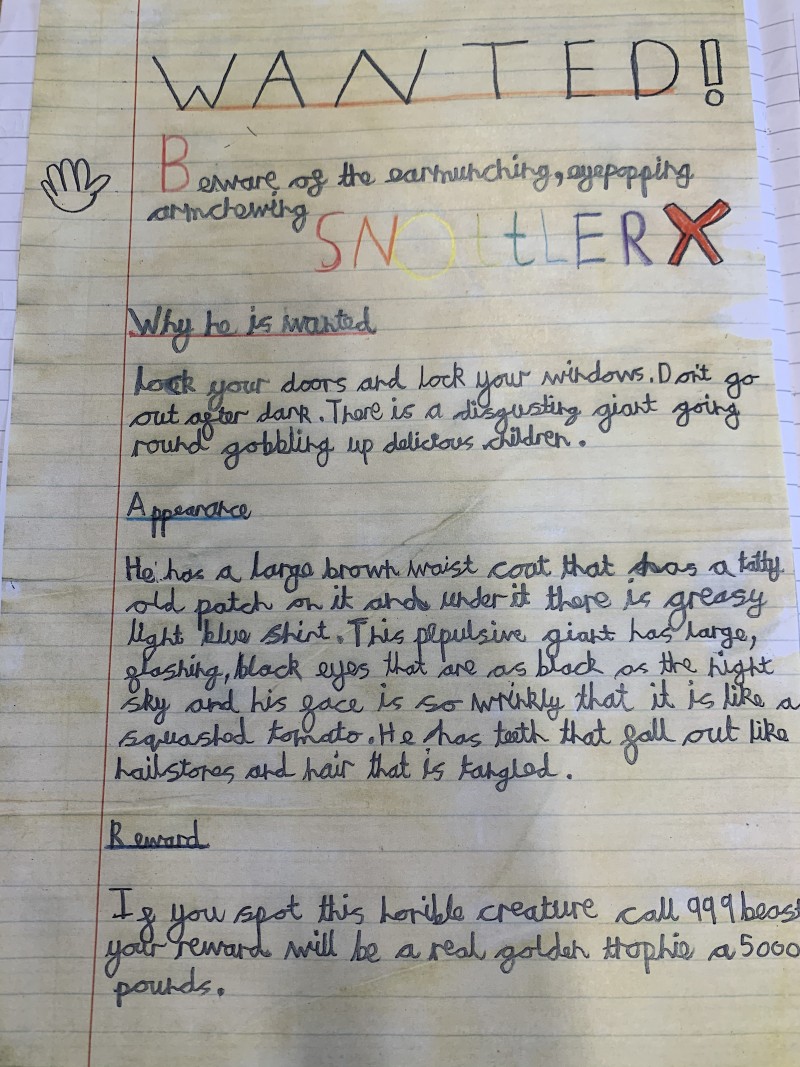 WANTED!
Beware of the earmunching, eyepopping
armchewing
SNOttLER X
Why he is wanted
Lock your doors and lock your windows. Don't go
out after dark. There is a disgusting giant going
round gobbling up delicious children.
Appearance
He has a large brown waist coat that has a tatty
old patch on it and under it there is greasy
light blue shirt. This repulsive giant has large,
flashing, black eyes that are as black as the night
sky and his face is so wrinkly that it is like a
squashed tomato. He has teeth that fall out like
hailstones and hair that is tangled.
Reward
If you spot this horible creature call 999 beast
your reward will be a real golden trophie a 5000
pounds.